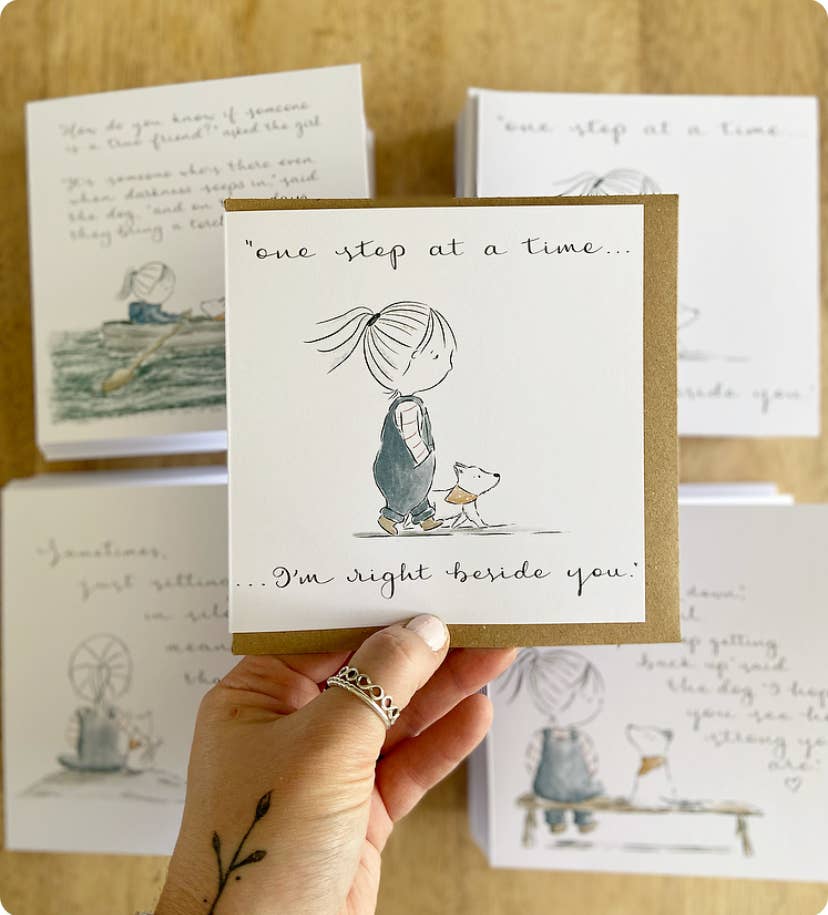 "How do you know if someone
is a true friend?" asked the girl
"It's someone who's there even
when darkness seeps in," said
the dog, "and on days
they bring a torch
"one step at a time...
"one step at a time...
...I'm right beside you."
beside you."
Sometimes,
just sitting
in
mean
tha
down",
getting
back up" said
the dog "I hope
you see how
strong you
are."